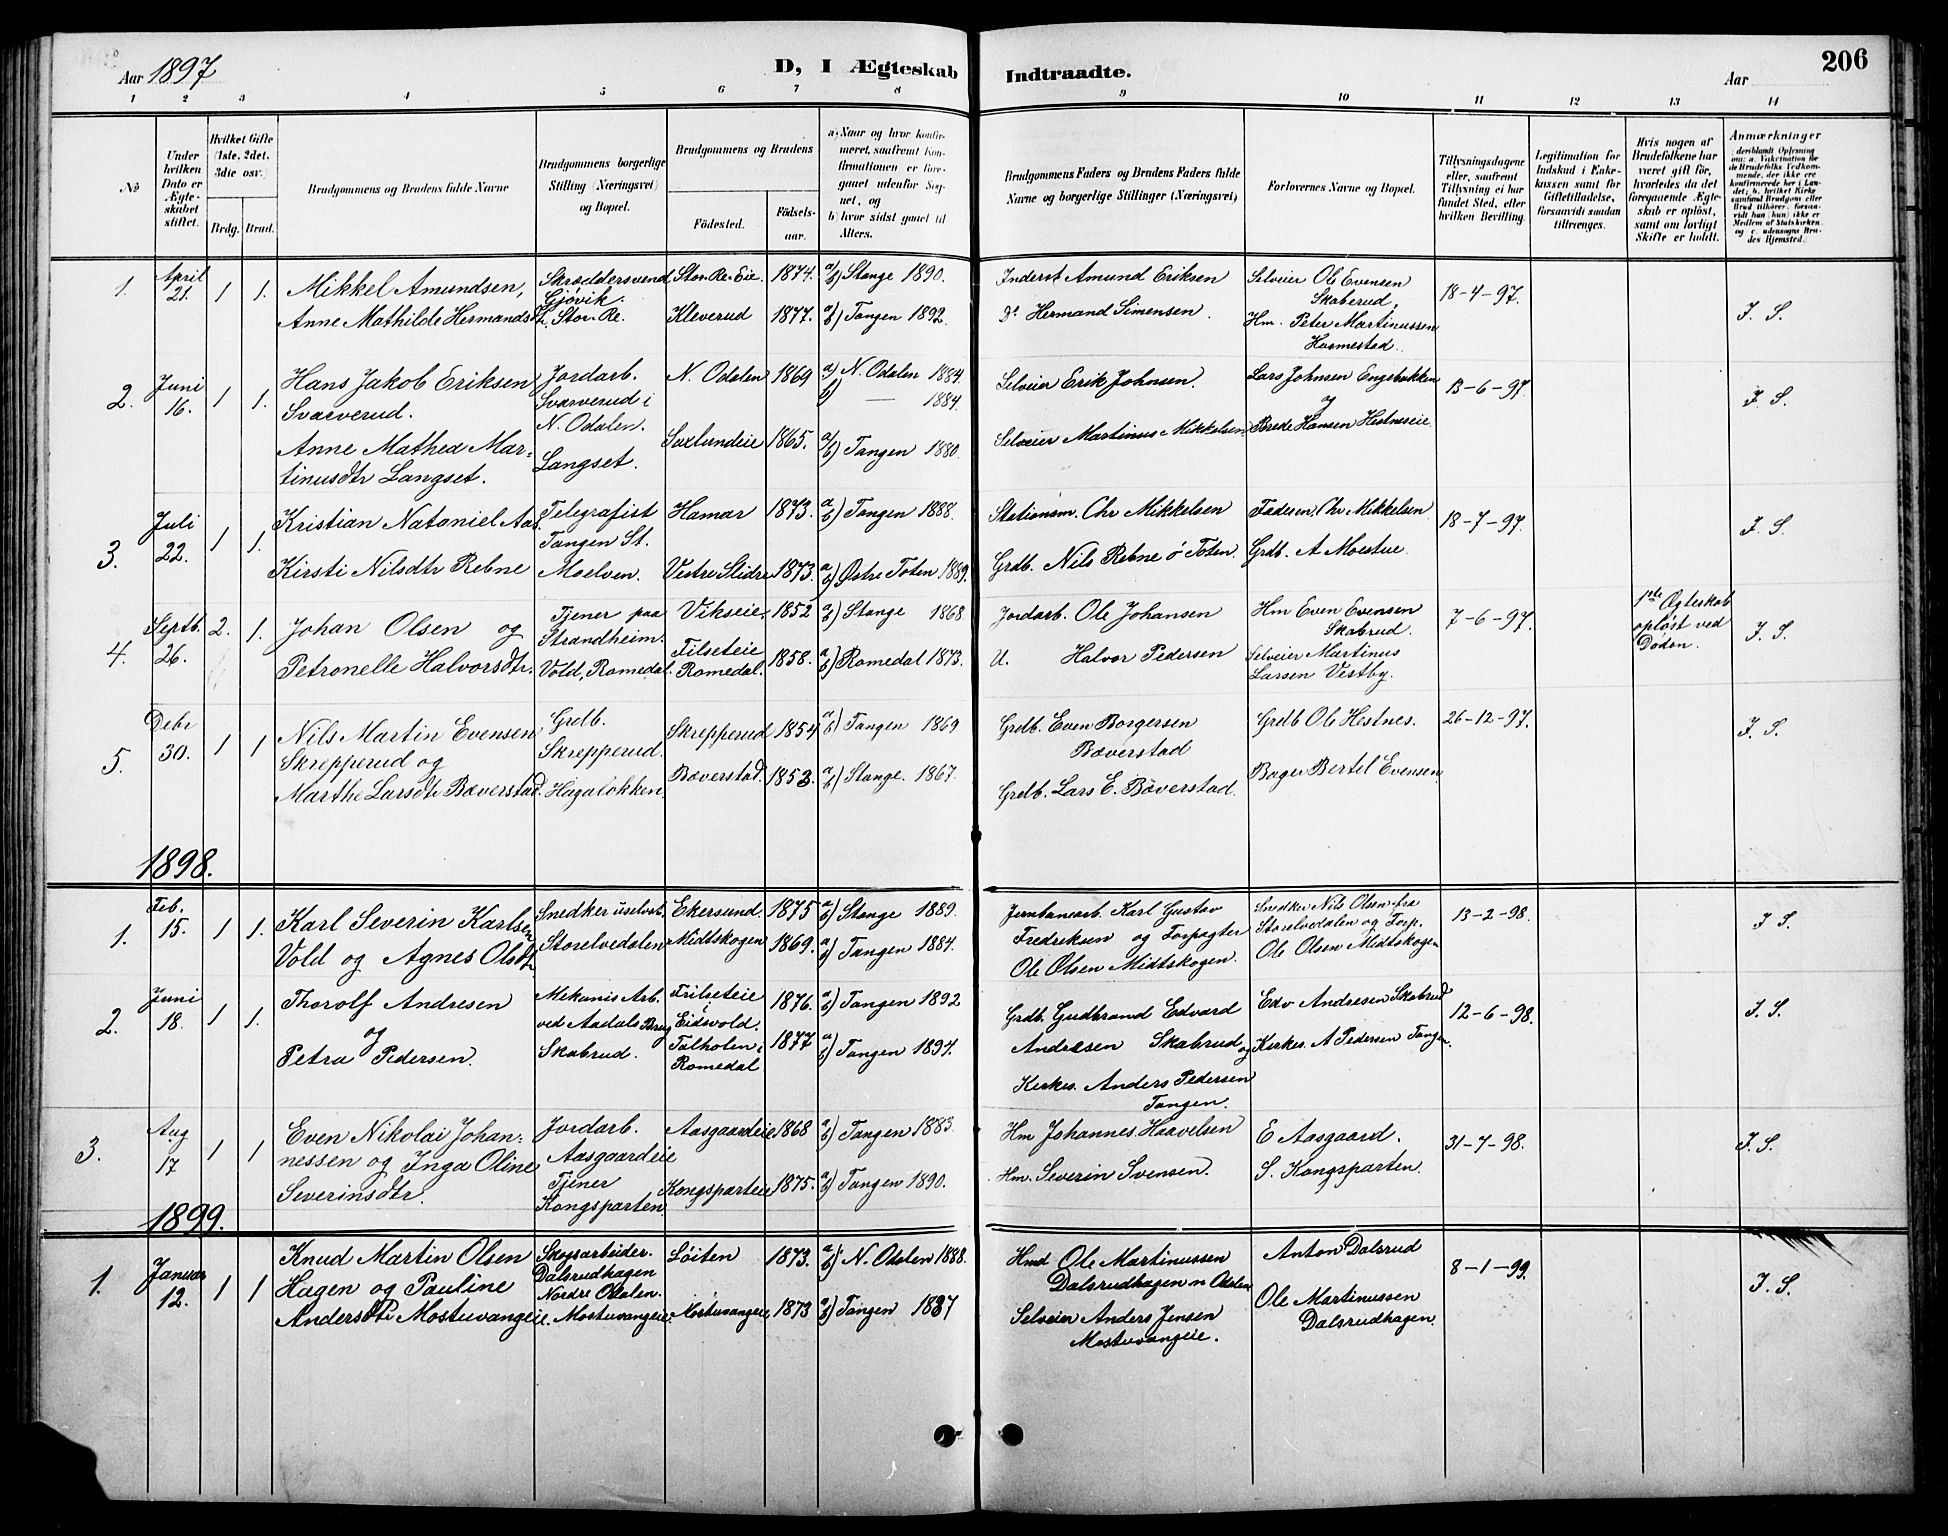 Aar 1897
D, I Ægteskab Indtraadte.
Aar
206
1 2 3 4 5 6 7 8 9 10 11 12 13 14
No
Under hvilken Dato er Ægteskabet stiftet.
Hvilket Gifte (1ste, 2det, 3die osv.)
Brdg. Brud.
Brudgommens og Brudens fulde Navne
Brudgommens borgerlige Stilling (Næringsvei) og Bopæl.
Brudgommens og Brudens
Födested.
Födselsaar.
a) Naar og hvor konfirmeret, saafremt Konfirmationen er foregaaet udenfor Sognet, og
b) hvor sidst gaaet til Alters.
Brudgommens Faders og Brudens Faders fulde Navne og borgerlige Stillinger (Næringsvei)
Forlovernes Navne og Bopæl.
Tillysningsdagene eller, saafremt Tillysning ei har fundet Sted, efter hvilken Bevilling.
Legitimation for Indskud i Enkekassen samt for Giftetilladelse, forsaavidt saadan tiltrænges.
Hvis nogen af Brudefolkene har været gift för, hvorledes da det foregaaende Ægteskab er oplöst, samt om lovligt Skifte er holdt.
Anmærkninger
deriblandt Oplysning om: a. Vakcination for de Brudefolks Vedkommende, der ikke ere konfirmerede her i Landet; b. hvilket Kirkesamfund Brudgom eller Brud tilhörer, forsaavidt han (hun) ikke er Medlem af Statskirken, og c. udensogns Brudes Hjemsted.
1. April 21. 1 1. Mikkel Amundsen, Skræddersvend Gjøvik. Stor-Re-Eie. 1874. a/b) Stange 1890. Inderst Amund Eriksen Selveier Ole Evensen Skaberud, 18-4-97. J. S.
Anne Mathilde Hermandsdtr. Stor-Re. Kleverud 1877. a/b) Tangen 1892. Do Hermand Simensen. Hm. Peter Martinussen Husmestad.
2. Juni 16. 1 1. Hans Jakob Eriksen Svarverud. Jordarb. Svarverud i N. Odalen. N. Odalen 1869 a) N. Odalen 1884. b) — 1884. Selveier Erik Johnsen. Lars Johnsen Engebakken og 13-6-97. J. S.
Anne Mathea Martinusdtr Langset. Langset. Saxlundeie 1865. a/b) Tangen 1880. Selveier Martinus Mikkelsen Brede Hansen Hestneseie.
3. Juli 22. 1 1. Kristian Nataniel Aas. Telegrafist Tangen St. Hamar 1873. a/b) Tangen 1888. Stationsm. Chr Mikkelsen Faderen, Chr Mikkelsen 18-7-97. J. S.
Kirsti Nilsdtr Rebne Moelven. Vestre Slidre 1873. a/b) Østre Toten 1889. Grdb. Nils Rebne ø Toten. Grdb. A Moestue.
4. Septb. 26. 2. 1. Johan Olsen og Tjener paa Strandheim. Vikseie. 1852 a/b) Stange 1868. Jordarb. Ole Johansen Hm Even Evensen Skabrud. 7-6-97. 1ste Ægteskab opløst ved Døden. J. S.
Petronelle Halvorsdtr. Vold, Romedal. Filseteie Romedal. 1858. a/b) Romedal 1873. U. Halvor Pedersen Selveier Martinus Larsen Vestby.
5. Debr 30. 1 1 Nils Martin Evensen Skrepperud og Grdb. Skrepperud. Skrepperud 1854 a/b) Tangen 1869 Grdb. Even Borgersen Bæverstad Grdb Ole Hestnes. 26-12-97. J. S.
Marthe Larsdtr Bæverstad. Hagaløkken. Bæverstad. 1853. a/b) Stange. 1867. Grdb. Lars E. Bæverstad. Bager Bertel Evensen
1898.
1. Feb. 15. 1 1. Karl Severin Karlsen Snedker uselvst. Ekersund. 1875 a/b) Stange 1889. Jernbanearb. Karl Gustav Fredriksen og Forpagter Snedker Nils Olsen fra Storelvedalen og Forp. 13-2-98. J S.
Vold og Agnes Olsdtr Storelvedalen Midtskogen 1869. a/b) Tangen 1884. Ole Olsen Midtskogen. Ole Olsen Midtskogen
2. Juni 18. 1 1. Thorolf Andresen og Mekanis Arb. ved Aadals Brug Frilseteie i Eidsvold. 1876. a/b) Tangen 1892 Grdb. Gudbrand Edvard Andresen Skabrud og Edv Andresen Skabrud 12-6-98. J. S.
Petra Pedersen. Skabrud. Tølholen i Romedal 1877 a/b) Tangen 1894. Kirkes. Anders Pedersen Tangen. Kirkes. A Pedersen Tangen.
3. Aug 17 1 1 Even Nikolai Johannessen og Inga Oline Severinsdtr. Jordarb. Aasgaardeie Aasgaardeie 1868 a/b) Tangen 1883. Hm Johannes Haavelsen E Aasgaard. 31-7-98. J. S.
Tjener Kongsparten Kongsparteie 1875. a/b) Tangen 1890. Hm. Severin Svensen. S. Kongsparten.
1899.
1. Januar 12. 1 1 Knud Martin Olsen Hagen og Pauline Skogsarbeider. Dalsrudhagen Nordre Odalen. Løiten 1873. a/b) N. Odalen 1888. Hmd Ole Martinussen Dalsrudhagen n Odalen Anton Dalsrud 8-1-99. J. S.
Andersdtr Mostuvangeie. Mostuvangeie. Mostuvangeie 1873 a/b) Tangen 1887 Selveier Anders Jensen Mostuvangeie. Ole Martinussen Dalsrudhagen.